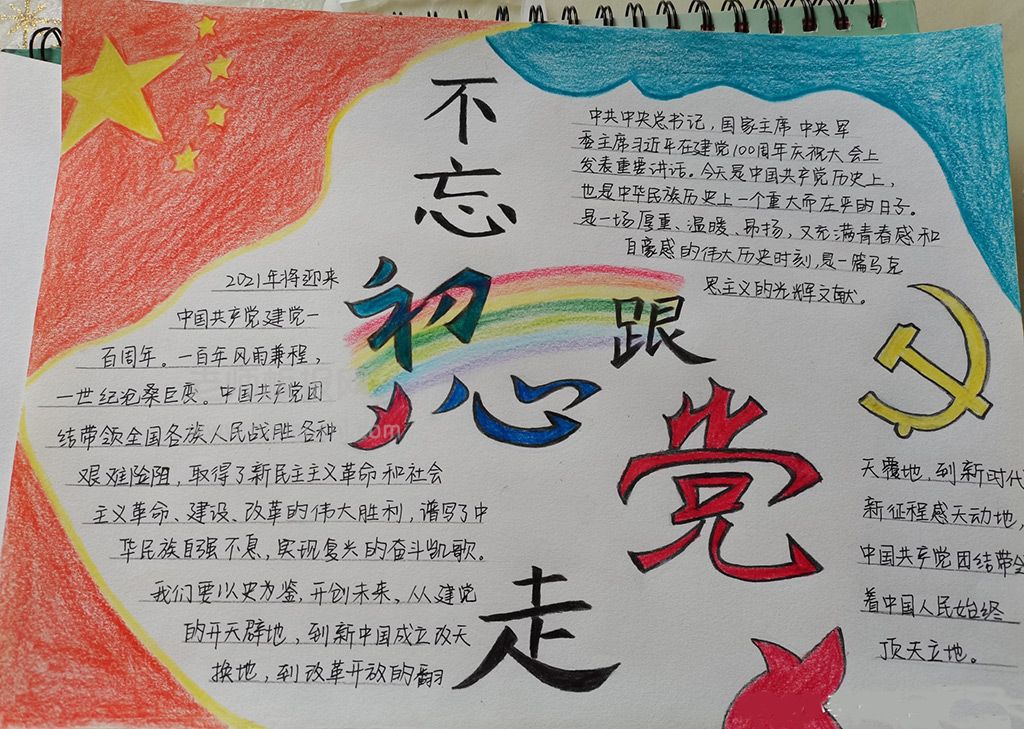 不忘初心
跟党走
中共中央总书记,国家主席中央军
委主席习近平在建党100周年庆祝大会上
发表重要讲话。今天是中国共产党历史上,
也是中华民族历史上一个重大而庄严的日子。
是一场厚重、温暖、昂扬,又充满青春感和
自豪感的伟大历史时刻,是一篇马克
思主义的光辉文献。
2021年将迎来
中国共产党建党一
百周年。一百年风雨兼程,
一世纪沧桑巨变。中国共产党团
结带领全国各族人民战胜各种
艰难险阻,取得了新民主主义革命和社会
主义革命、建设、改革的伟大胜利,谱写了中
华民族自强不息,实现复兴的奋斗凯歌。
我们要以史为鉴,开创未来,从建党
的开天辟地,到新中国成立改天
换地,到改革开放的翻
天覆地,到新时代
新征程感天动地,
中国共产党团结带
着中国人民始终
顶天立地。